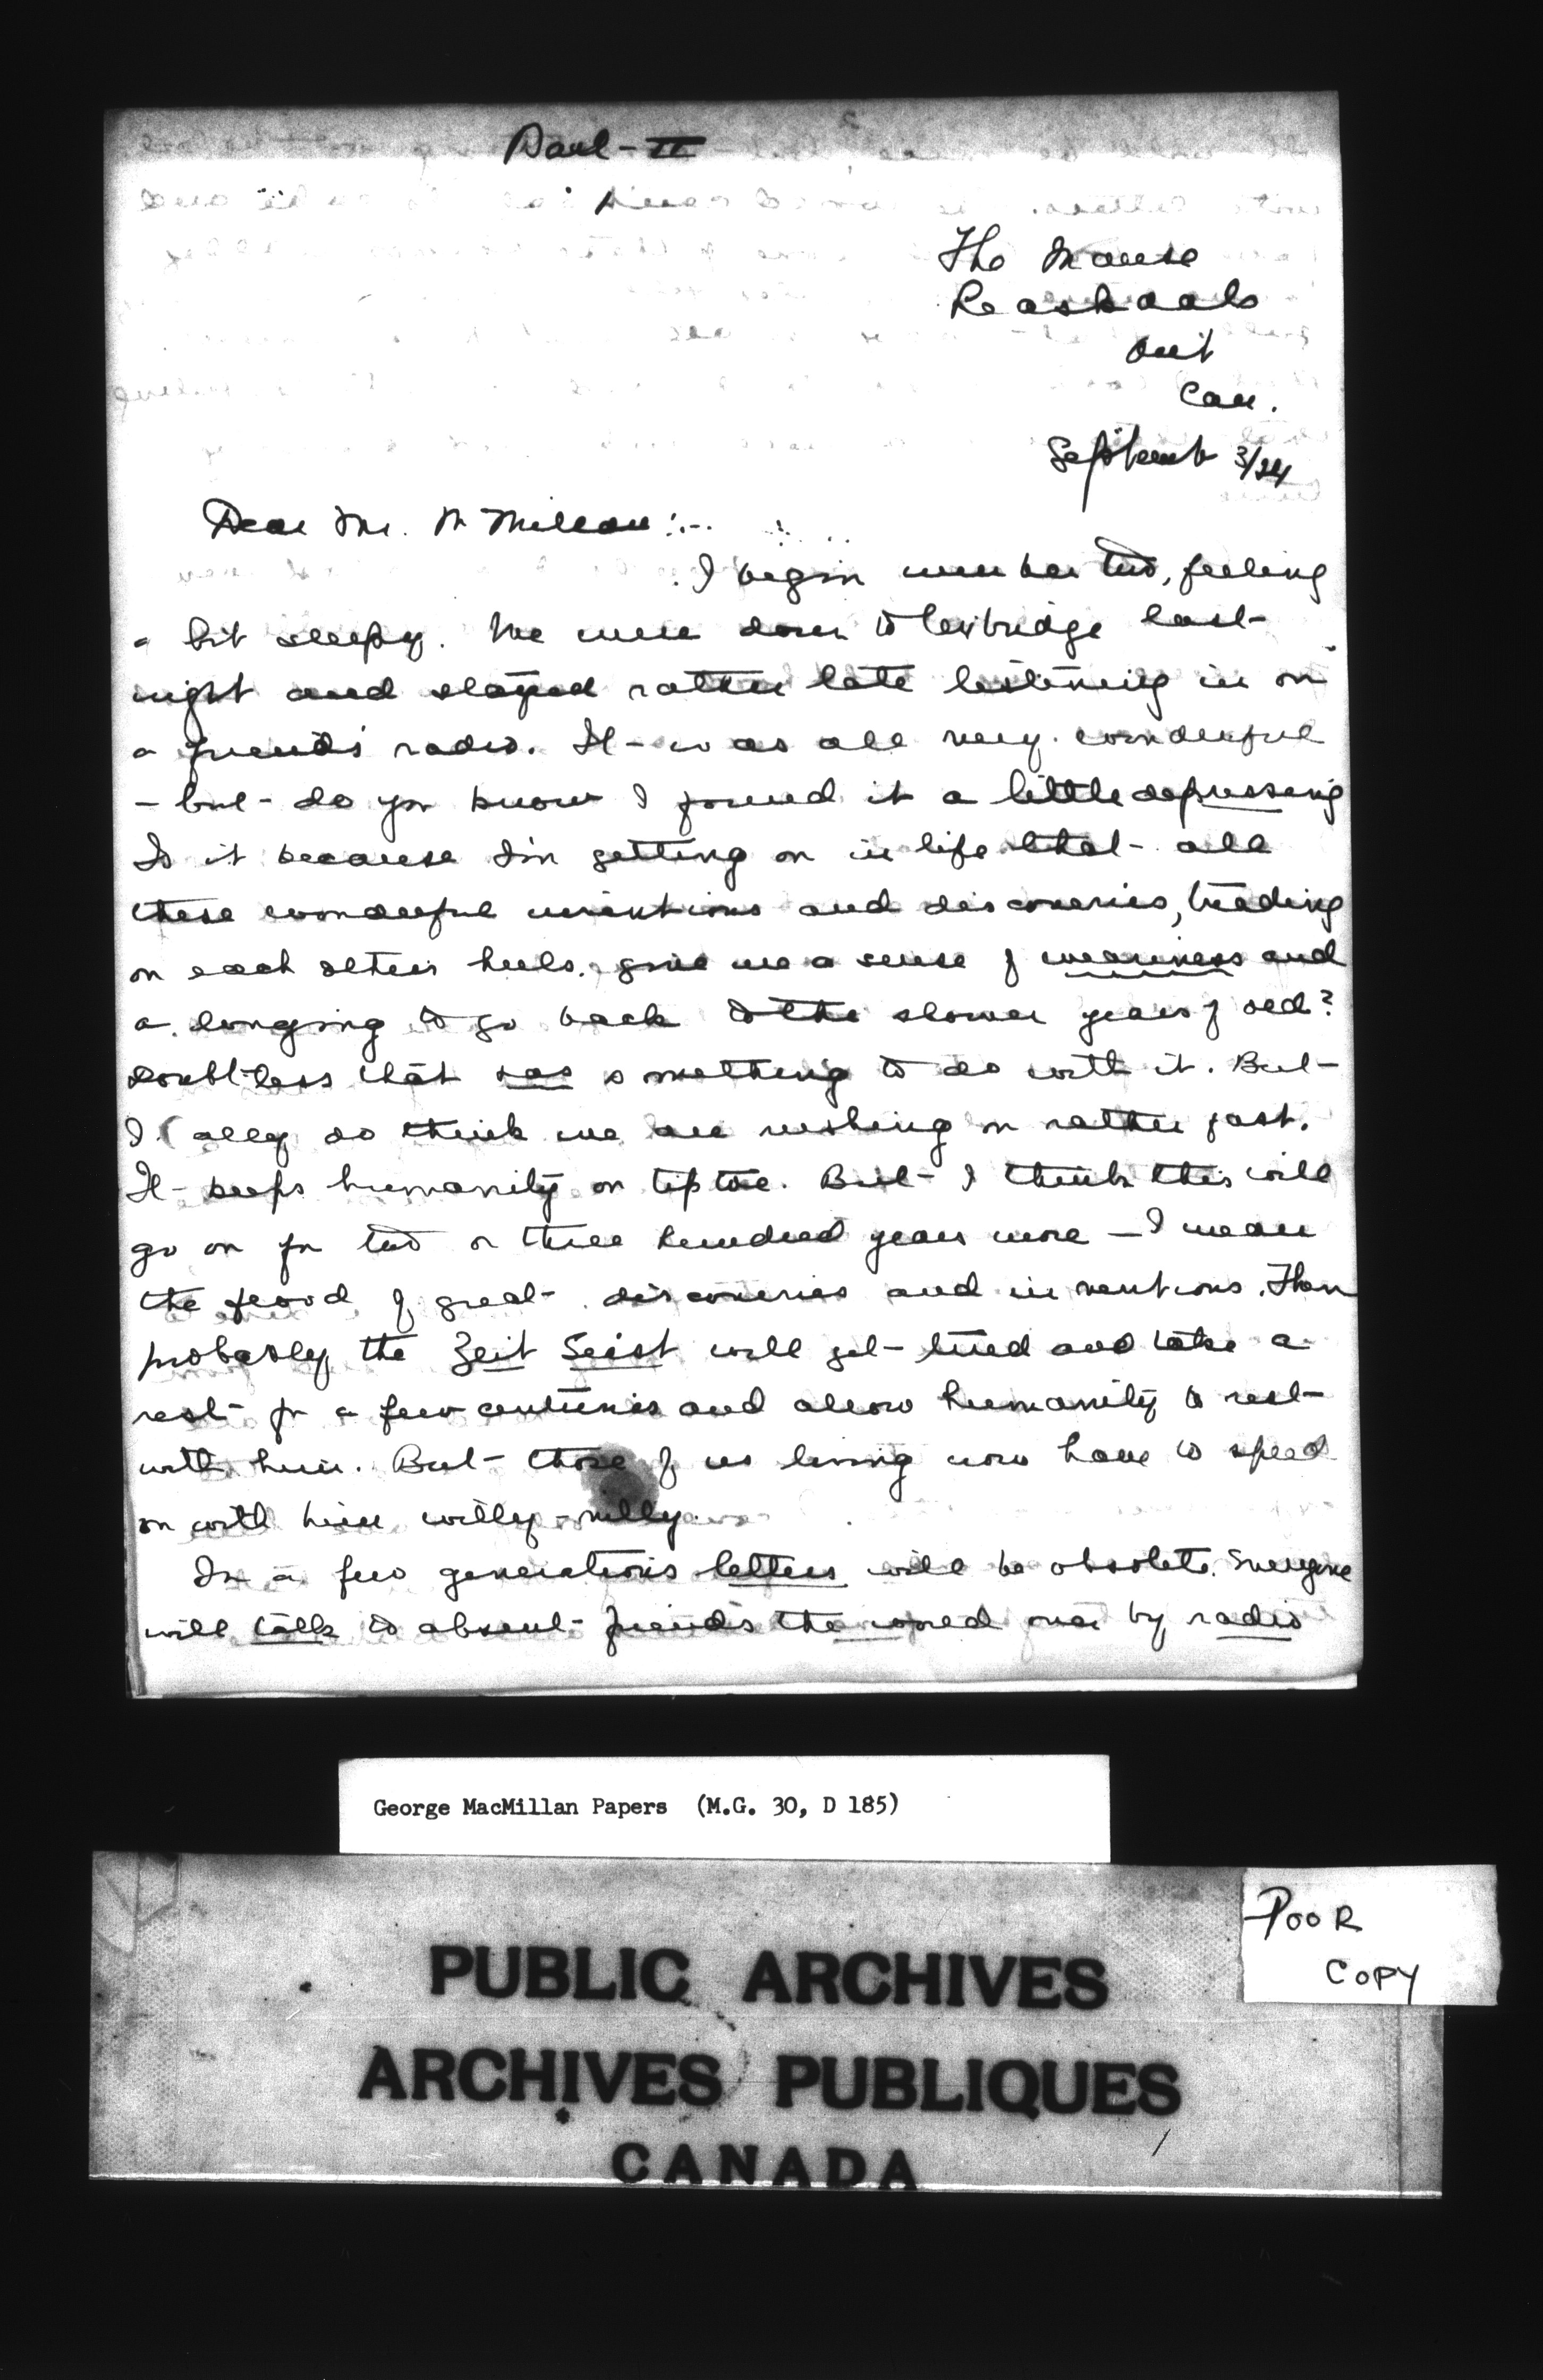 Part - II
The Manse
Leaskdale
Ont
Can.
September 3/24
Dear Mr. McMillan:-
I begin number two, feeling
a bit sleepy. We were down to Uxbridge last
night and stayed rather late listening in on
a friend's radio. It was all very wonderful
- but do you know I found it a little depressing
Is it because I'm getting on in life that all
these wonderful inventions and discoveries, treading
on each others heels, give me a sense of weariness and
a longing to go back to the slower years of old?
Doubtless that has something to do with it. But
I really do think we are rushing on rather fast.
It keeps humanity on tiptoe. But I think this will
go on for two or three hundred years more - I mean
the flood of great discoveries and inventions. Then
probably the Zeit Geist will get tired and take a
rest for a few centuries and allow humanity to rest
with him. But those of us living now have to speed
on with him willy-nilly.
In a few generations letters will be obsolete. Everyone
will talk to absent friends the world over by radio
George MacMillan Papers (M.G. 30, D 185)
POOR
COPY
PUBLIC ARCHIVES
ARCHIVES PUBLIQUES
CANADA